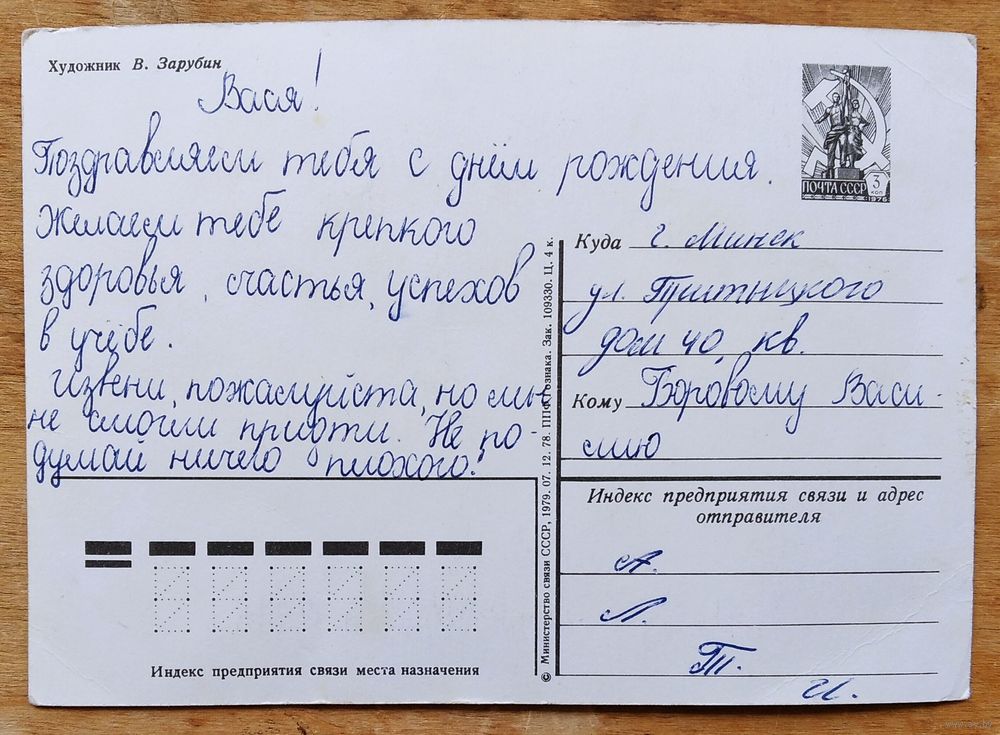 Художник В. Зарубин
Вася!
Поздравляем тебя с днём рождения.
Желаем тебе крепкого
здоровья, счастья, успехов
в учёбе.
Извени, пожалуйста, но мы
не смогли прийти. Не по-
думай ничего плохого!
ПОЧТА СССР
3
КОП
1976
Куда г. Минск
ул. Притыцкого
дом 40, кв.
Кому Боровому Васи-
лию
Индекс предприятия связи и адрес
отправителя
А.
Л.
Т.
И.
Индекс предприятия связи места назначения
© Министерство связи СССР, 1979. 07. 12. 78. ППФ Гознака. Зак. 109330. Ц. 4 к.